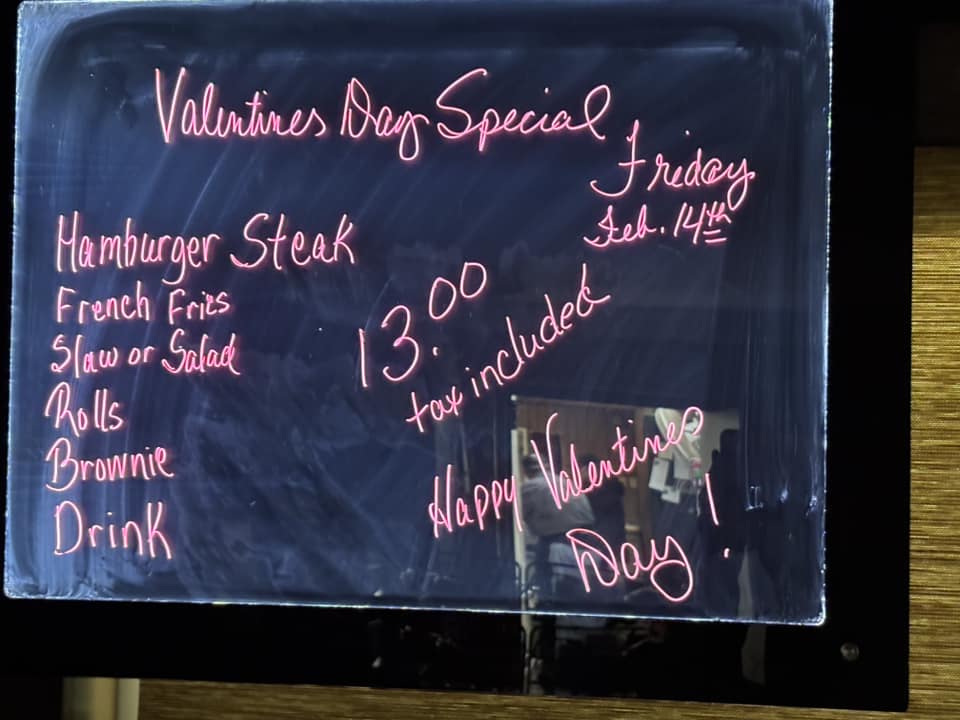 Valentines Day Special
Friday
Feb. 14th
Hamburger Steak
French Fries
Slaw or Salad
Rolls
Brownie
Drink
13.00
tax included
Happy Valentines
Day!